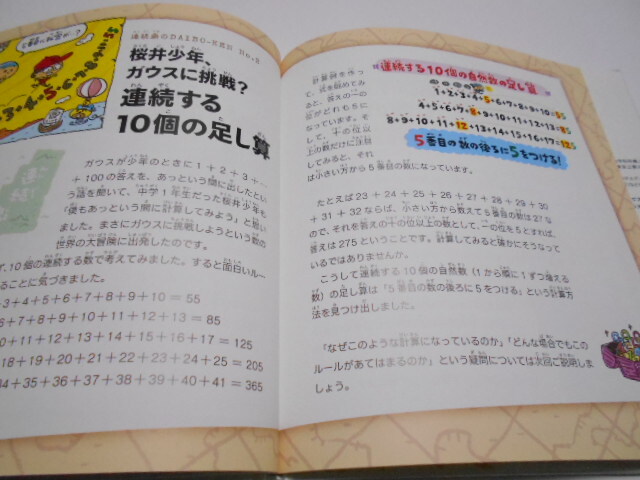 連続数のDAIBO-KEN No.2
桜井少年、
ガウスに挑戦?
連続する
10個の足し算
ガウスが少年のときに1+2+3+
+100の答えを、あっという間に出したとい
う話を聞いて、中学1年生だった桜井少年も
「僕もあっという間に計算してみよう」と思い
ました。まさにガウスに挑戦しようという数の
世界の大冒険に出発したのです。
10個の連続する数で考えてみました。すると面白いルー
ることに気づきました。
+3+4+5+6+7+8+9+10=55
+10+11+12+13=85
10+11+12+13+14+15+16+17=125
+19+20+21+22+23+24+25=205
34+35+36+37+38+39+40+41=365
計算例を作っ
て、式を眺めてみ
ると、答えの一の
位がどれも5に
なっています。そ
して、十の位以
上の数だけに注目
してみると、それ
は小さい方から5番目の数になっています。
連続する10個の自然数の足し算
1+2+3+4+5+6+7+8+9+10=55
4+5+6+7+8+9+10+11+12+13=85
8+9+10+11+12+13+14+15+16+17=125
5番目の数の後ろに5をつける!
たとえば23+24+25+26+27+28+29+30
+31+32ならば、小さい方から数えて5番目の数は27な
ので、それを答えの十の位以上の数として、一の位を5とすれば、
答えは275ということです。計算してみると確かにそうなって
いるではありませんか。
こうして連続する10個の自然数(1から順に1ずつ増える
数)の足し算は「5番目の数の後ろに5をつける」という計算方
法を見つけ出しました。
「なぜこのような計算になっているのか」「どんな場合でもこの
ルールがあてはまるのか」という疑問については次回ご説明しま
しょう。